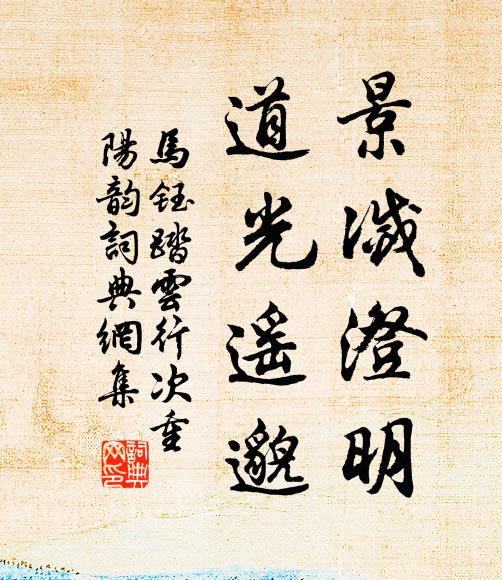 景滅澄明
道光遥邈
馬鈺踏雲行次重
陽韵詞典網集
詞典网印